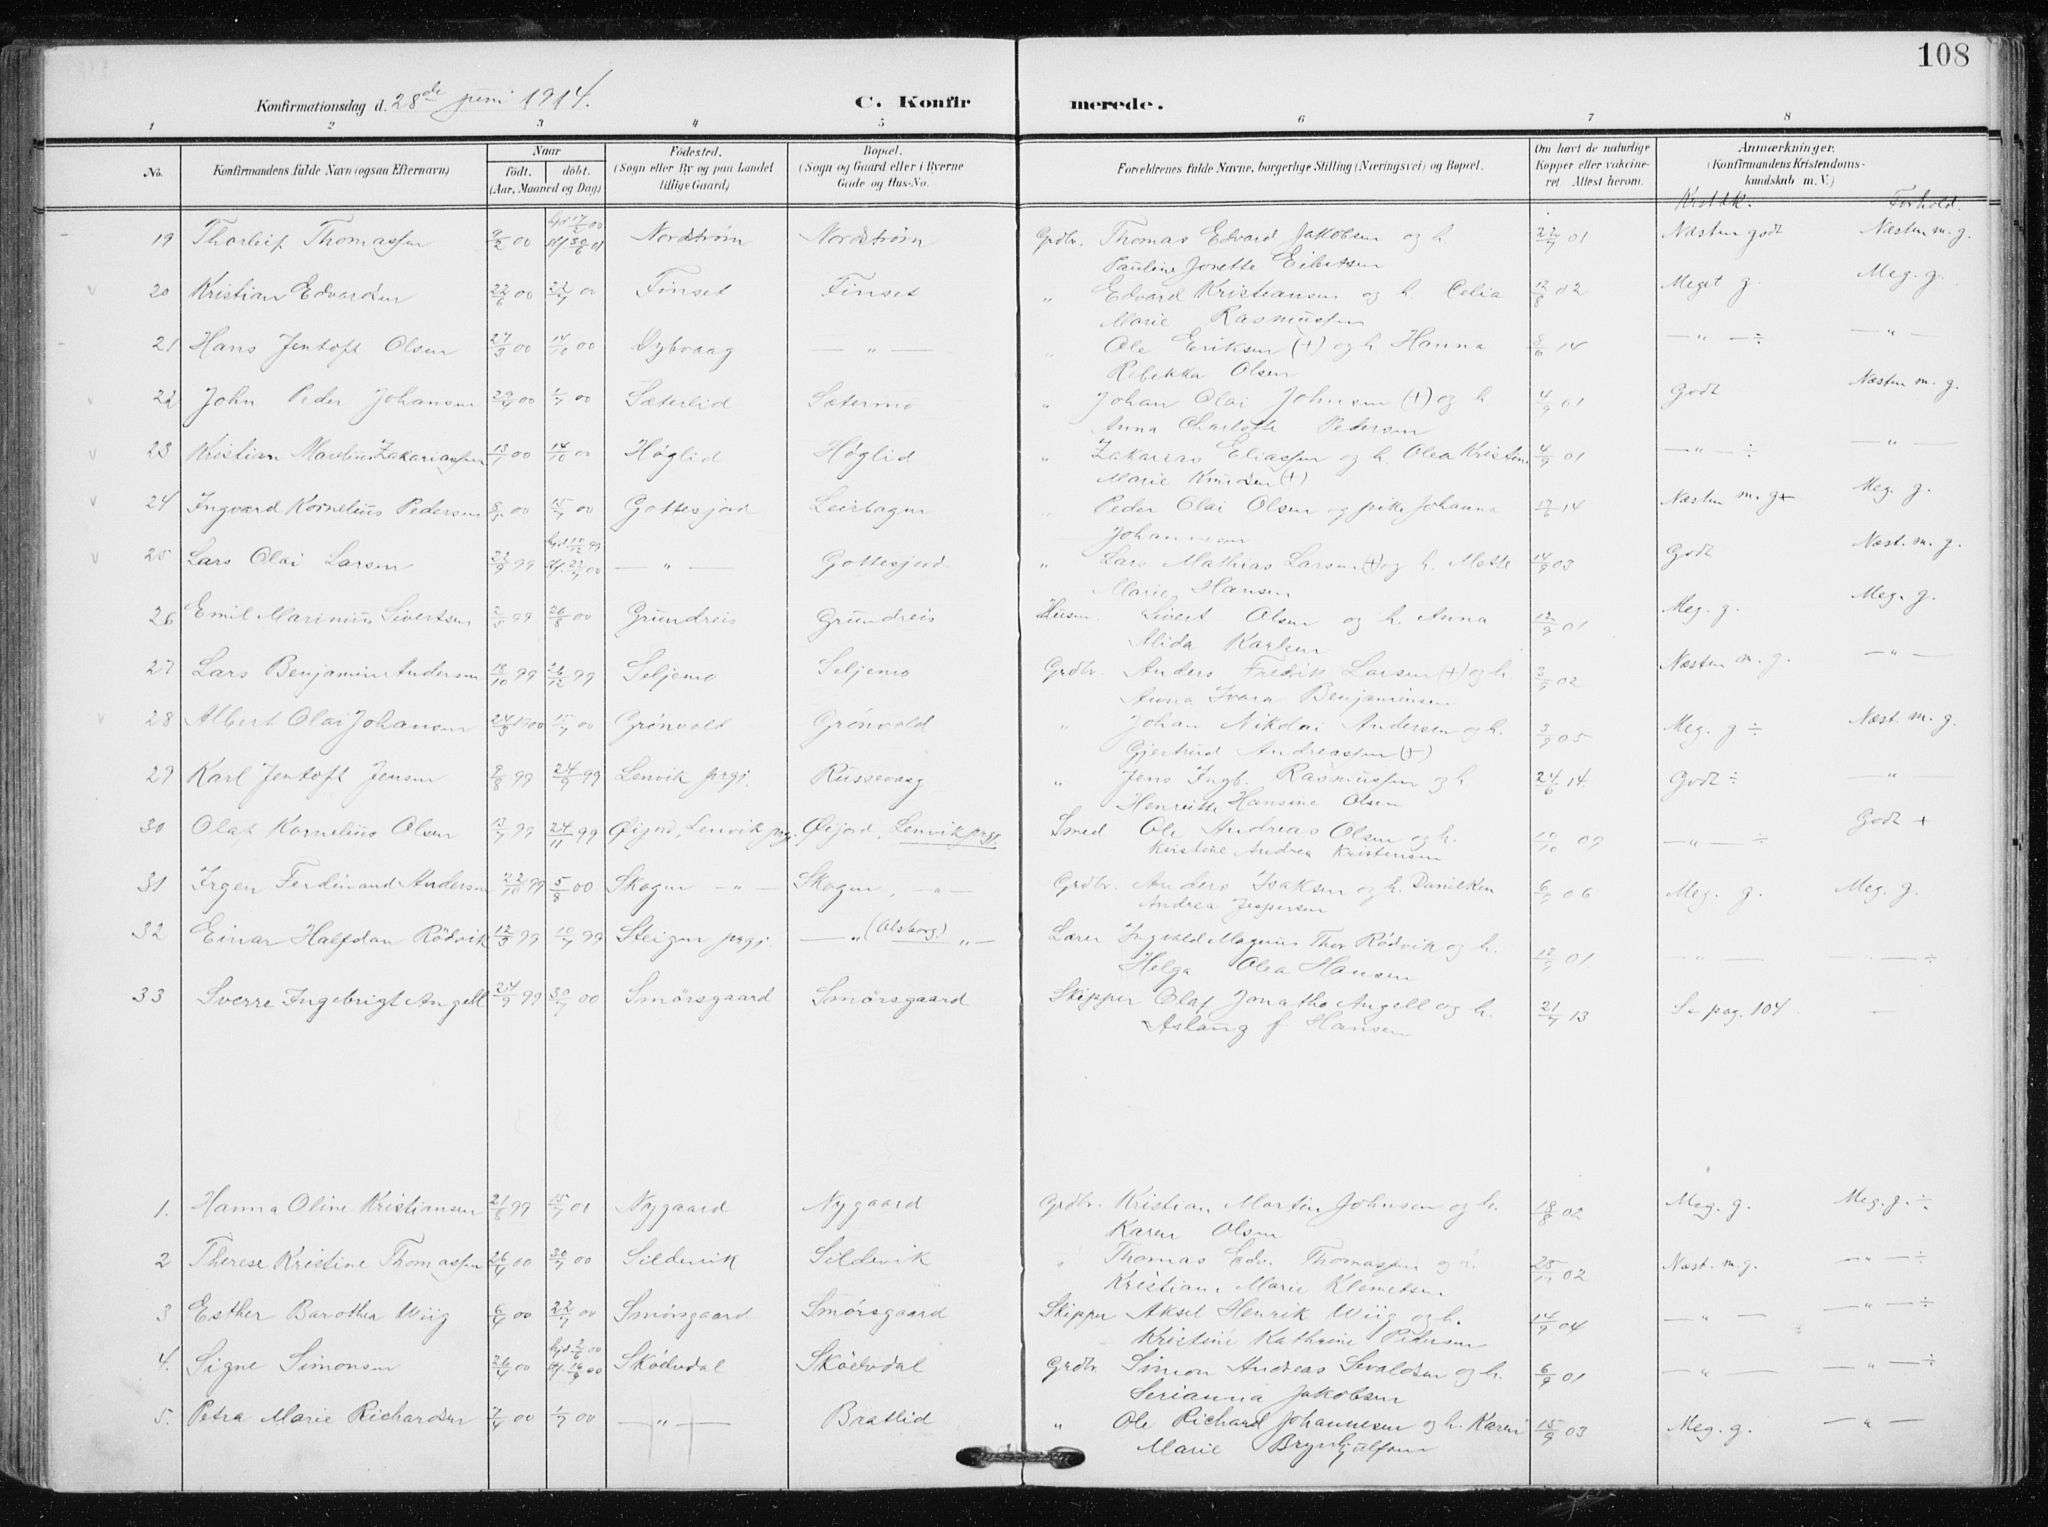 108
Konfirmationsdag d. 28de juni 1914.
C. Konfirmerede.
1 2 3 4 5 6 7 8
No. Konfirmandens fulde Navn (ogsaa Efternavn) Naar født. døbt. (Aar, Maaned og Dag) Fødested. (Sogn eller By og paa Landet tillige Gaard) Bopæl. (Sogn og Gaard eller i Byerne Gade og Hus-No. Forældrenes fulde Navne, borgerlige Stilling (Næringsvei) og Bopæl. Om havt de naturlige Kopper eller vakcineret. Attest herom. Anmærkninger. (Konfirmandens Kristendomskundskab m. V.)
Krstdk. Forhold.
19 Thorleif Thomassen 9/2 00 Nordstrøm Nordstrøm Grdbr. Thomas Edvard Jakobsen og h. 22/7 01 Næsten godt Næsten m. g.
Pauline Josette
20 Kristian Edvardsen 22/6 00 22/7 00 Finset Finset " Edvard Kristiansen og h. Celia 12/8 02 Meget g. Meg. g.
Marie Rasmussen
21 Hans Jentoft Olsen 27/3 00 14/10 00 Dybvaag — " — " Ole Eriksen (+) og h. Hanna 8/6 14 — " — ÷ — " —
Rebekka Olsen
22 John Peder Johansen 1/7 00 Sæterlid Sætermo " Johan Olai Johnsen (+) og h. 4/9 01 Godt Næsten m. g.
Anna Charlotte Pedersen
23 Kristian Martinus Zakariassen 13/7 00 14/10 00 Høglid Høglid " Zakarias Eliassen og h. Olea Kristine 4/9 01 — " — ÷ — " —
Marie Knudsen (+)
24 Ingvard Kornelius Pedersen 15/7 00 Gottesjord Leirbagen " Peder Olai Olsen og pike Johanna 17/6 14 Næsten m. g+ Meg. g.
Johannesen
25 Lars Olai Larsen 22/9 99 — " — Gottesjord. " Lars Mathias Larsen (+) og h. Mette 14/9 03 Godt Næst. m. g.
Marie Hansen
26 Emil Marinius Sivertsen 2/5 99 26/8 00 Grundreis Grundreis Husm. Sivert Olsen og h. Anna 12/9 01 Meg. g. Meg. g.
Alida Karlsen
27 Lars Benjamin Andersen 18/10 99 26/12 99 Seljemo Seljemo Grdbr. Anders Fredrik Larsen (+) og h. 3/9 02 Næsten m. g. — " —
Anna Ivara Benjaminsen
28 Albert Olai Johansen 24/3 1900 15/7 00 Grönvold Grönvold " Johan Nikolai Andersen og h. 3/9 05 Meg. g ÷ Næst. m. g.
Gjertrud Andreassen (+)
29 Karl Jentoft Jensen 9/8 99 24/9 99 Lenvik prgj. Russevaag " Jens Ingb. Rasmussen og h 24/6 14. Godt ÷ "
Henriette Hansine Olsen
30 Olaf Kornelius Olsen 13/7 99 24/11 99 Øijord, Lenvik prgj. Øijord, Lenvik prgj. Smed Ole Andreas Olsen og h. 10/10 09 — " — ÷ Godt +
Kristine Andrea Kristensen
31 Irgen Ferdinand Andersen 22/10 99 5/8 00 Skogen — " — Skogen, — " — Grdbr. Anders Isaksen og h. Danielken 6/9 06 Meg. g. Meg. g.
Andrea Jespersen
32 Einar Halfdan Rödvik 12/3 99 10/7 99 Steigen prgj. — " (Olsborg) " — Lærer Ingvald Magnus Thor Rödvik og h. 12/9 01 — " — — " —
Helga Olea Hansen
33 Sverre Ingebrigt Angell 24/9 99 30/7 00 Smörsgaard Smörsgaard Skipper Olaf Jonatha Angell og h. 21/7 13 Se pag. 104. —
Aslaug f. Hansen
1. Hanna Oline Kristiansen 21/8 99 15/7 01 Nygaard Nygaard Grdbr. Kristian Martin Johnsen og h. 18/8 02 Meg. g. Meg. g. ÷
Karen Olsen
2 Therese Kristine Thomassen 26/4 00 30/7 00 Sildevik Sildevik " Thomas Edv. Thomassen og h. 02 Næst. m. g. — " — ÷
Kristiane Marie Klemetsen
3 Esther Barothea Wiig 6/4 00 22/7 00 Smörsgaard Smörsgaard Skipper Aksel Henrik Wiig og h. 14/9 04 — " — — " — ÷
Kristine Kathrine Pedersen
4. Signe Simonsen 26/4 00 Sködvdal Sködvdal Grdbr. Simon Andreas Sevaldsen og h. 6/9 01 — " — — " — ÷
Serianna Jakobsen
5. Petra Marie Richardsen 7/4 00 1/7 00 — " — Bratlid " Ole Richard Johannesen og h. Karen 15/9 03 Meg. g. — " —
Marie Brynhjulfsen